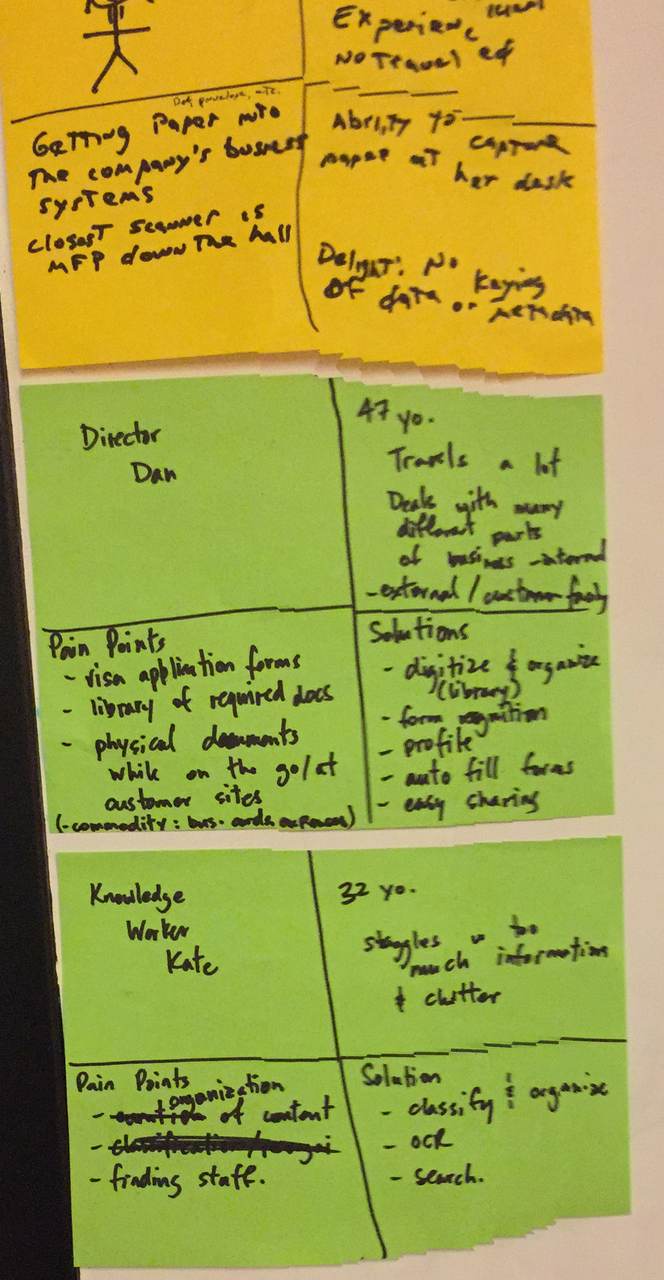 Experience
No Travel
Getting Paper into
The company's business
systems
closest scanner is
MFP down The hall
Ability To
capture
paper at
her desk
Delight: No
Keying
of data or
metadata
Director
Dan
47 yo.
Travels a lot
Deals with many
different parts
of business - internal
- external / customer facing
Pain Points
- visa application forms
- library of required docs
- physical documents
while on the go/at
customer sites
(- commodity: bus. cards, expenses)
Solutions
- digitize & organize
(library)
- form recognition
- profile
- auto fill forms
- easy sharing
Knowledge
Worker
Kate
32 yo.
struggles w too
much information
& clutter
Pain Points
organization
- of content
- finding staff.
Solution
- classify & organize
- OCR
- search.